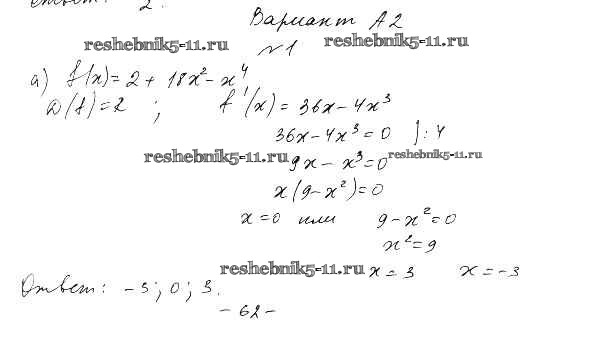 Ответ: 2.
Вариант А2
reshebnik5-11.ru reshebnik5-11.ru
№1
а) f(x) = 2 + 18x² - x⁴
D(f) = R ; f'(x) = 36x - 4x³
36x - 4x³ = 0 | : 4
reshebnik5-11.ru 9x - x³ = 0 reshebnik5-11.ru
x(9 - x²) = 0
x = 0 или 9 - x² = 0
x² = 9
reshebnik5-11.ru x = 3 x = -3
Ответ: -3; 0; 3.
- 62 -